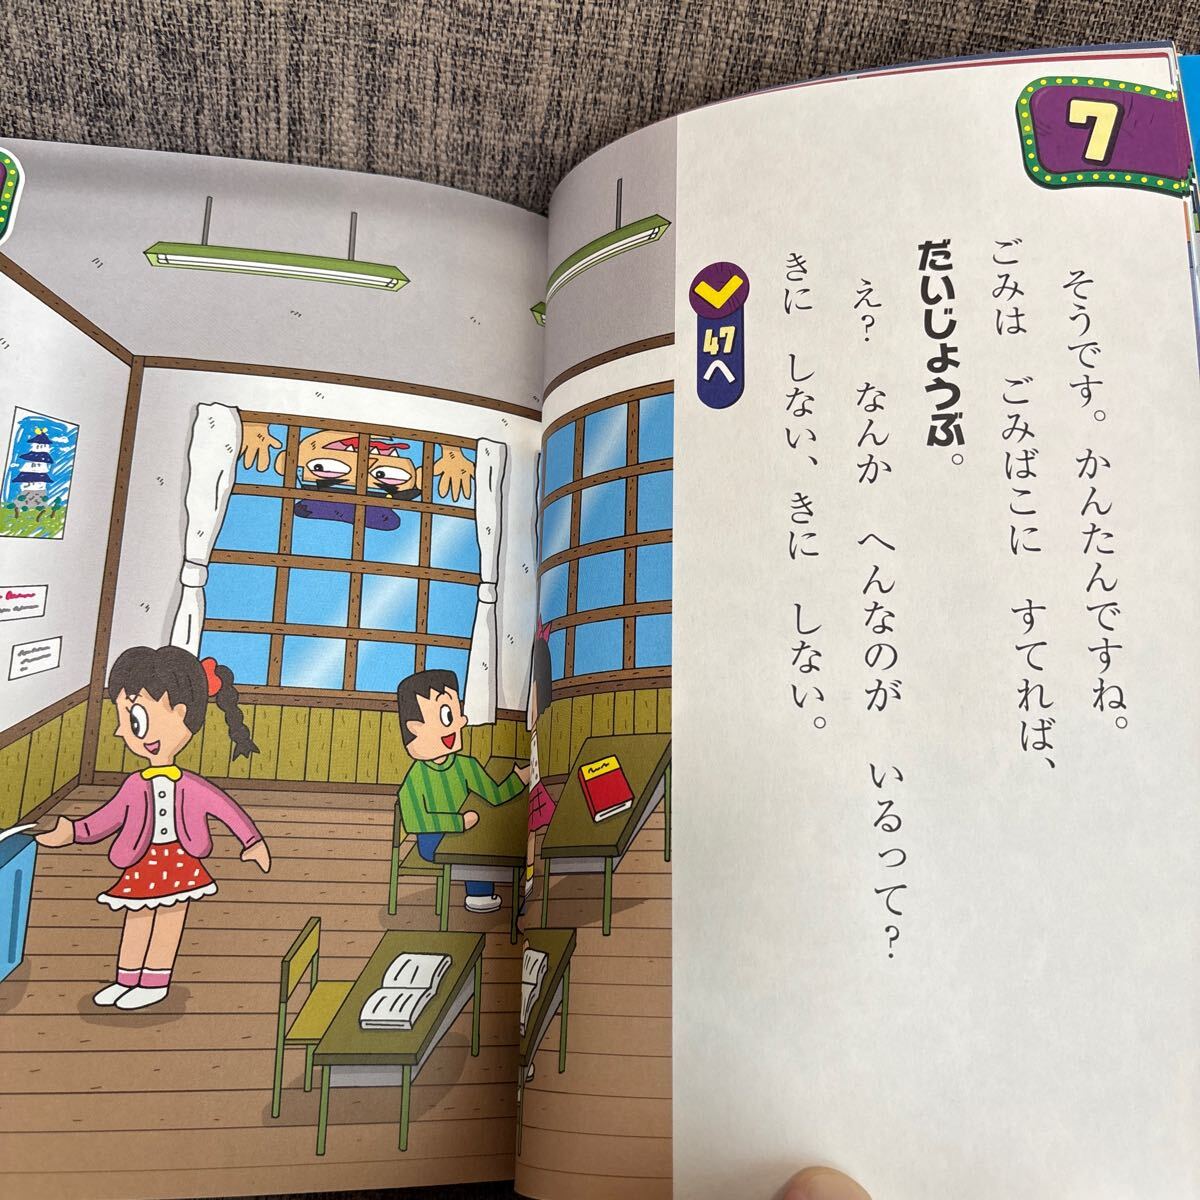 7
そうです。かんたんですね。
ごみは ごみばこに すてれば、
だいじょうぶ。
え? なんか へんなのが いるって?
きに しない、きに しない。
47へ